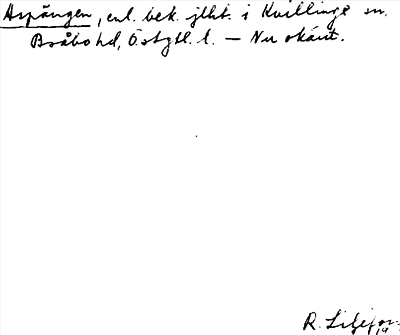 Aspången, enl. bek. jlht. i Kvillinge sn.
Bråbo hd, Östgtl. l. — Nu okänt.
R. Liljefors.